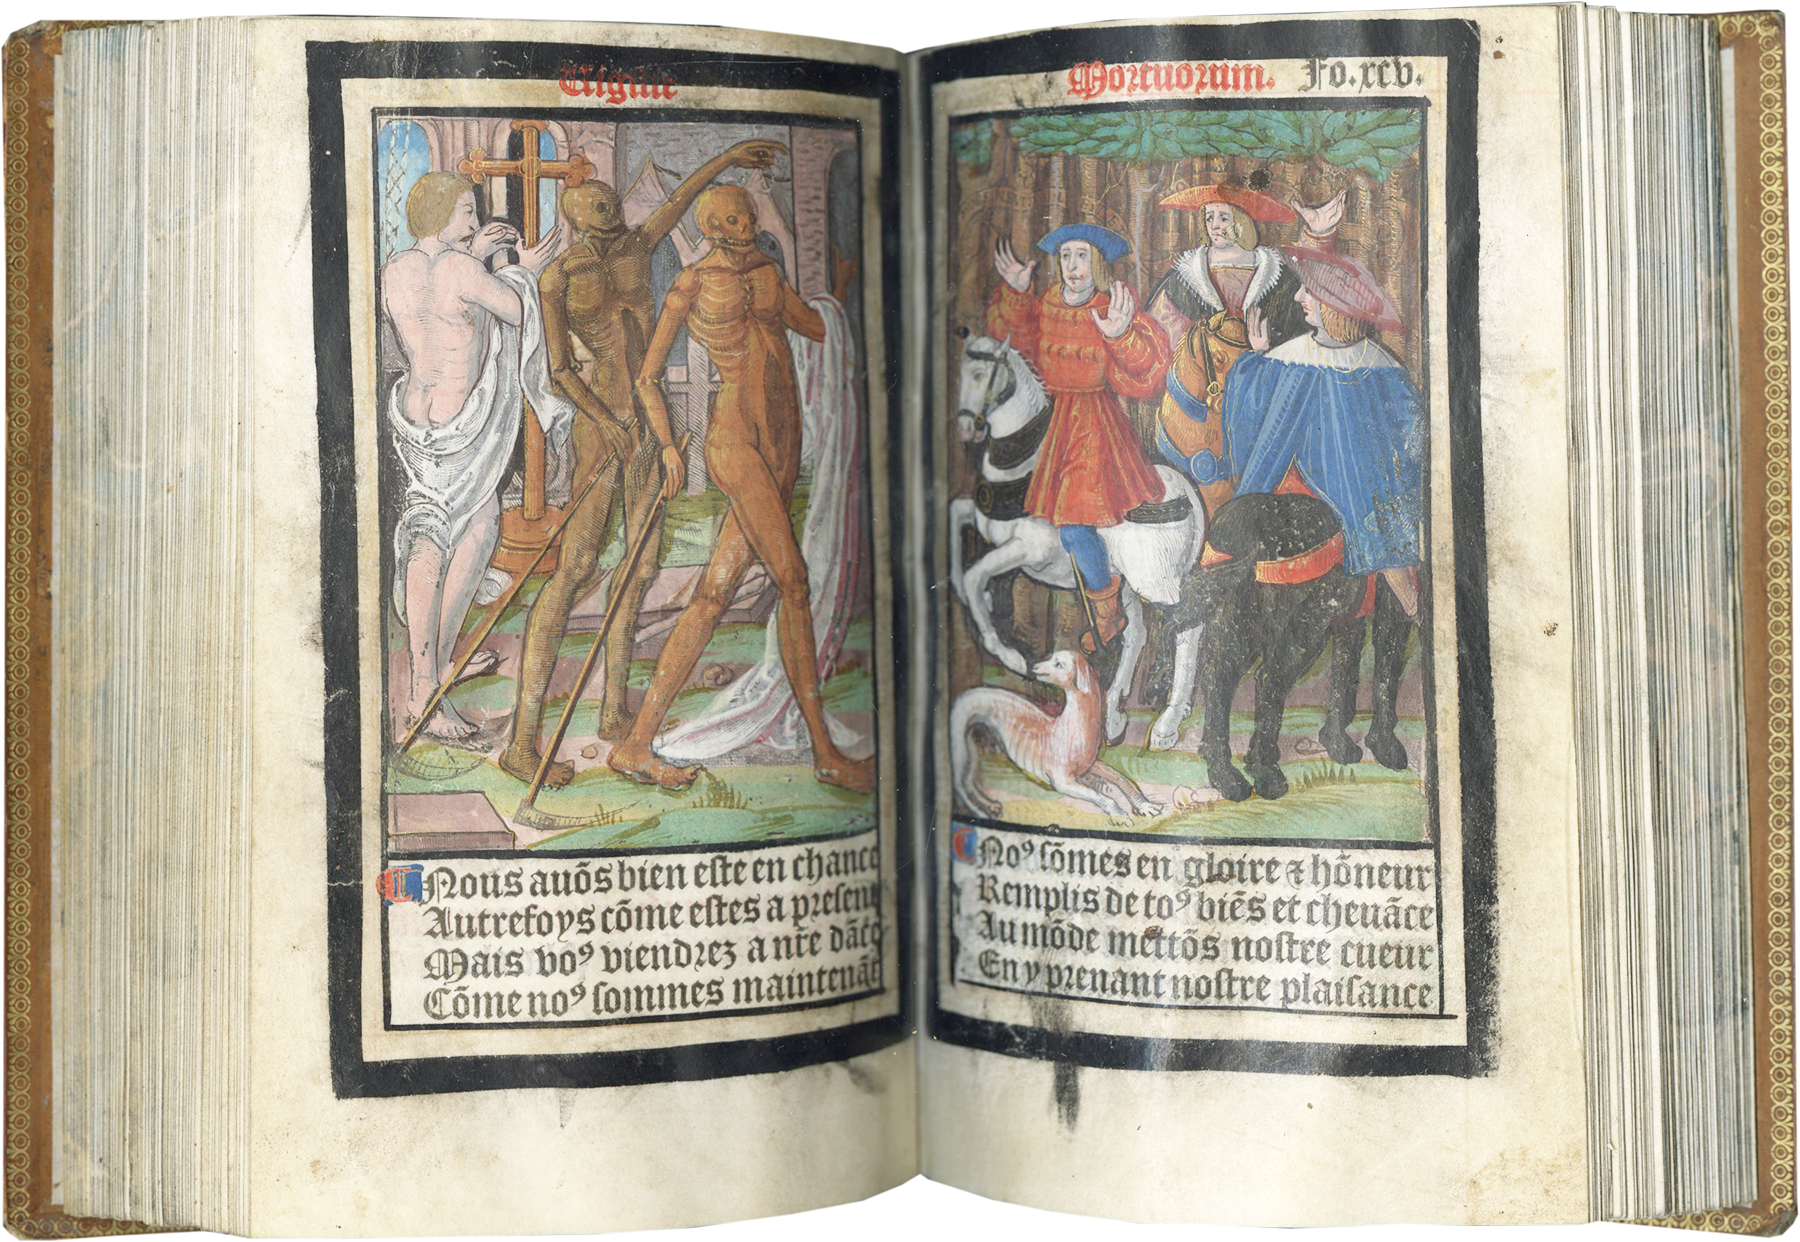 Vigilie
¶ Nous auõs bien este en chance
Autrefoys cõme estes a present
Mais vo⁹ viendrez a nr̃e dãce
Cõme no⁹ sommes maintenãt
Mortuorum. Fo.xcv.
¶ No⁹ sõmes en gloire ⁊ hõneur
Remplis de to⁹ biẽs et cheuãce
Au mõde mettõs nostre cueur
En y prenant nostre plaisance